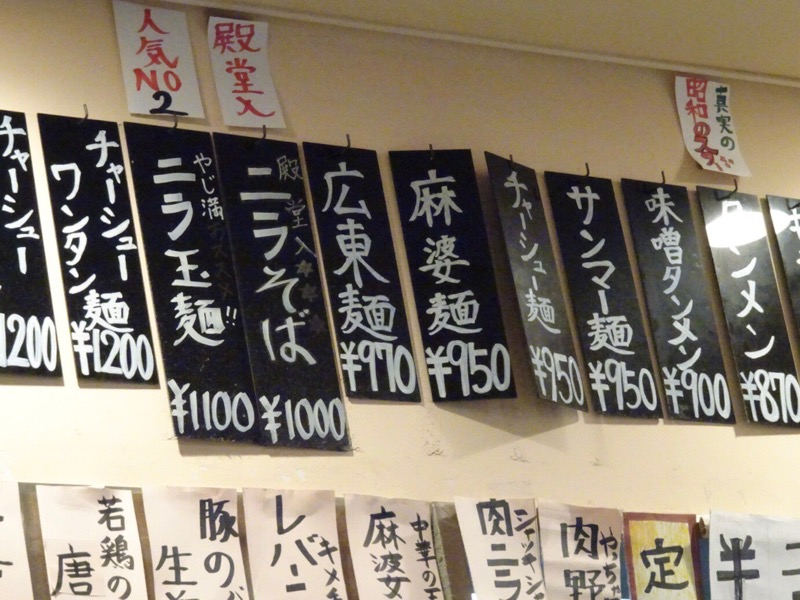 人気
NO
2
殿堂入
真実の
昭和の
チャーシュー
1200
チャーシュー
ワンタン麺
¥1200
やじ満
ニラ玉麺!!
¥1100
殿堂入
ニラそば
¥1000
広東麺
¥970
麻婆麺
¥950
チャーシュー麺
¥950
サンマー麺
¥950
味噌タンメン
¥900
タンメン
¥870
若鶏の
唐
豚の
生
レバー
キメ
中華の
麻婆
シャッキ
肉ニラ
肉野
定
半